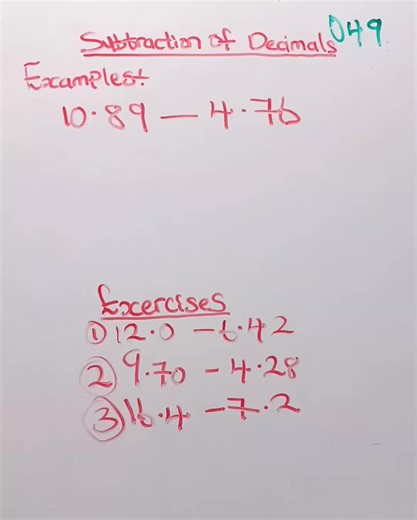 Subtraction of Decimals 049
Examples:
10.89 — 4.76
Excercises
① 12.0 - 6.42
② 9.70 - 4.28
③ 16.4 - 7.2